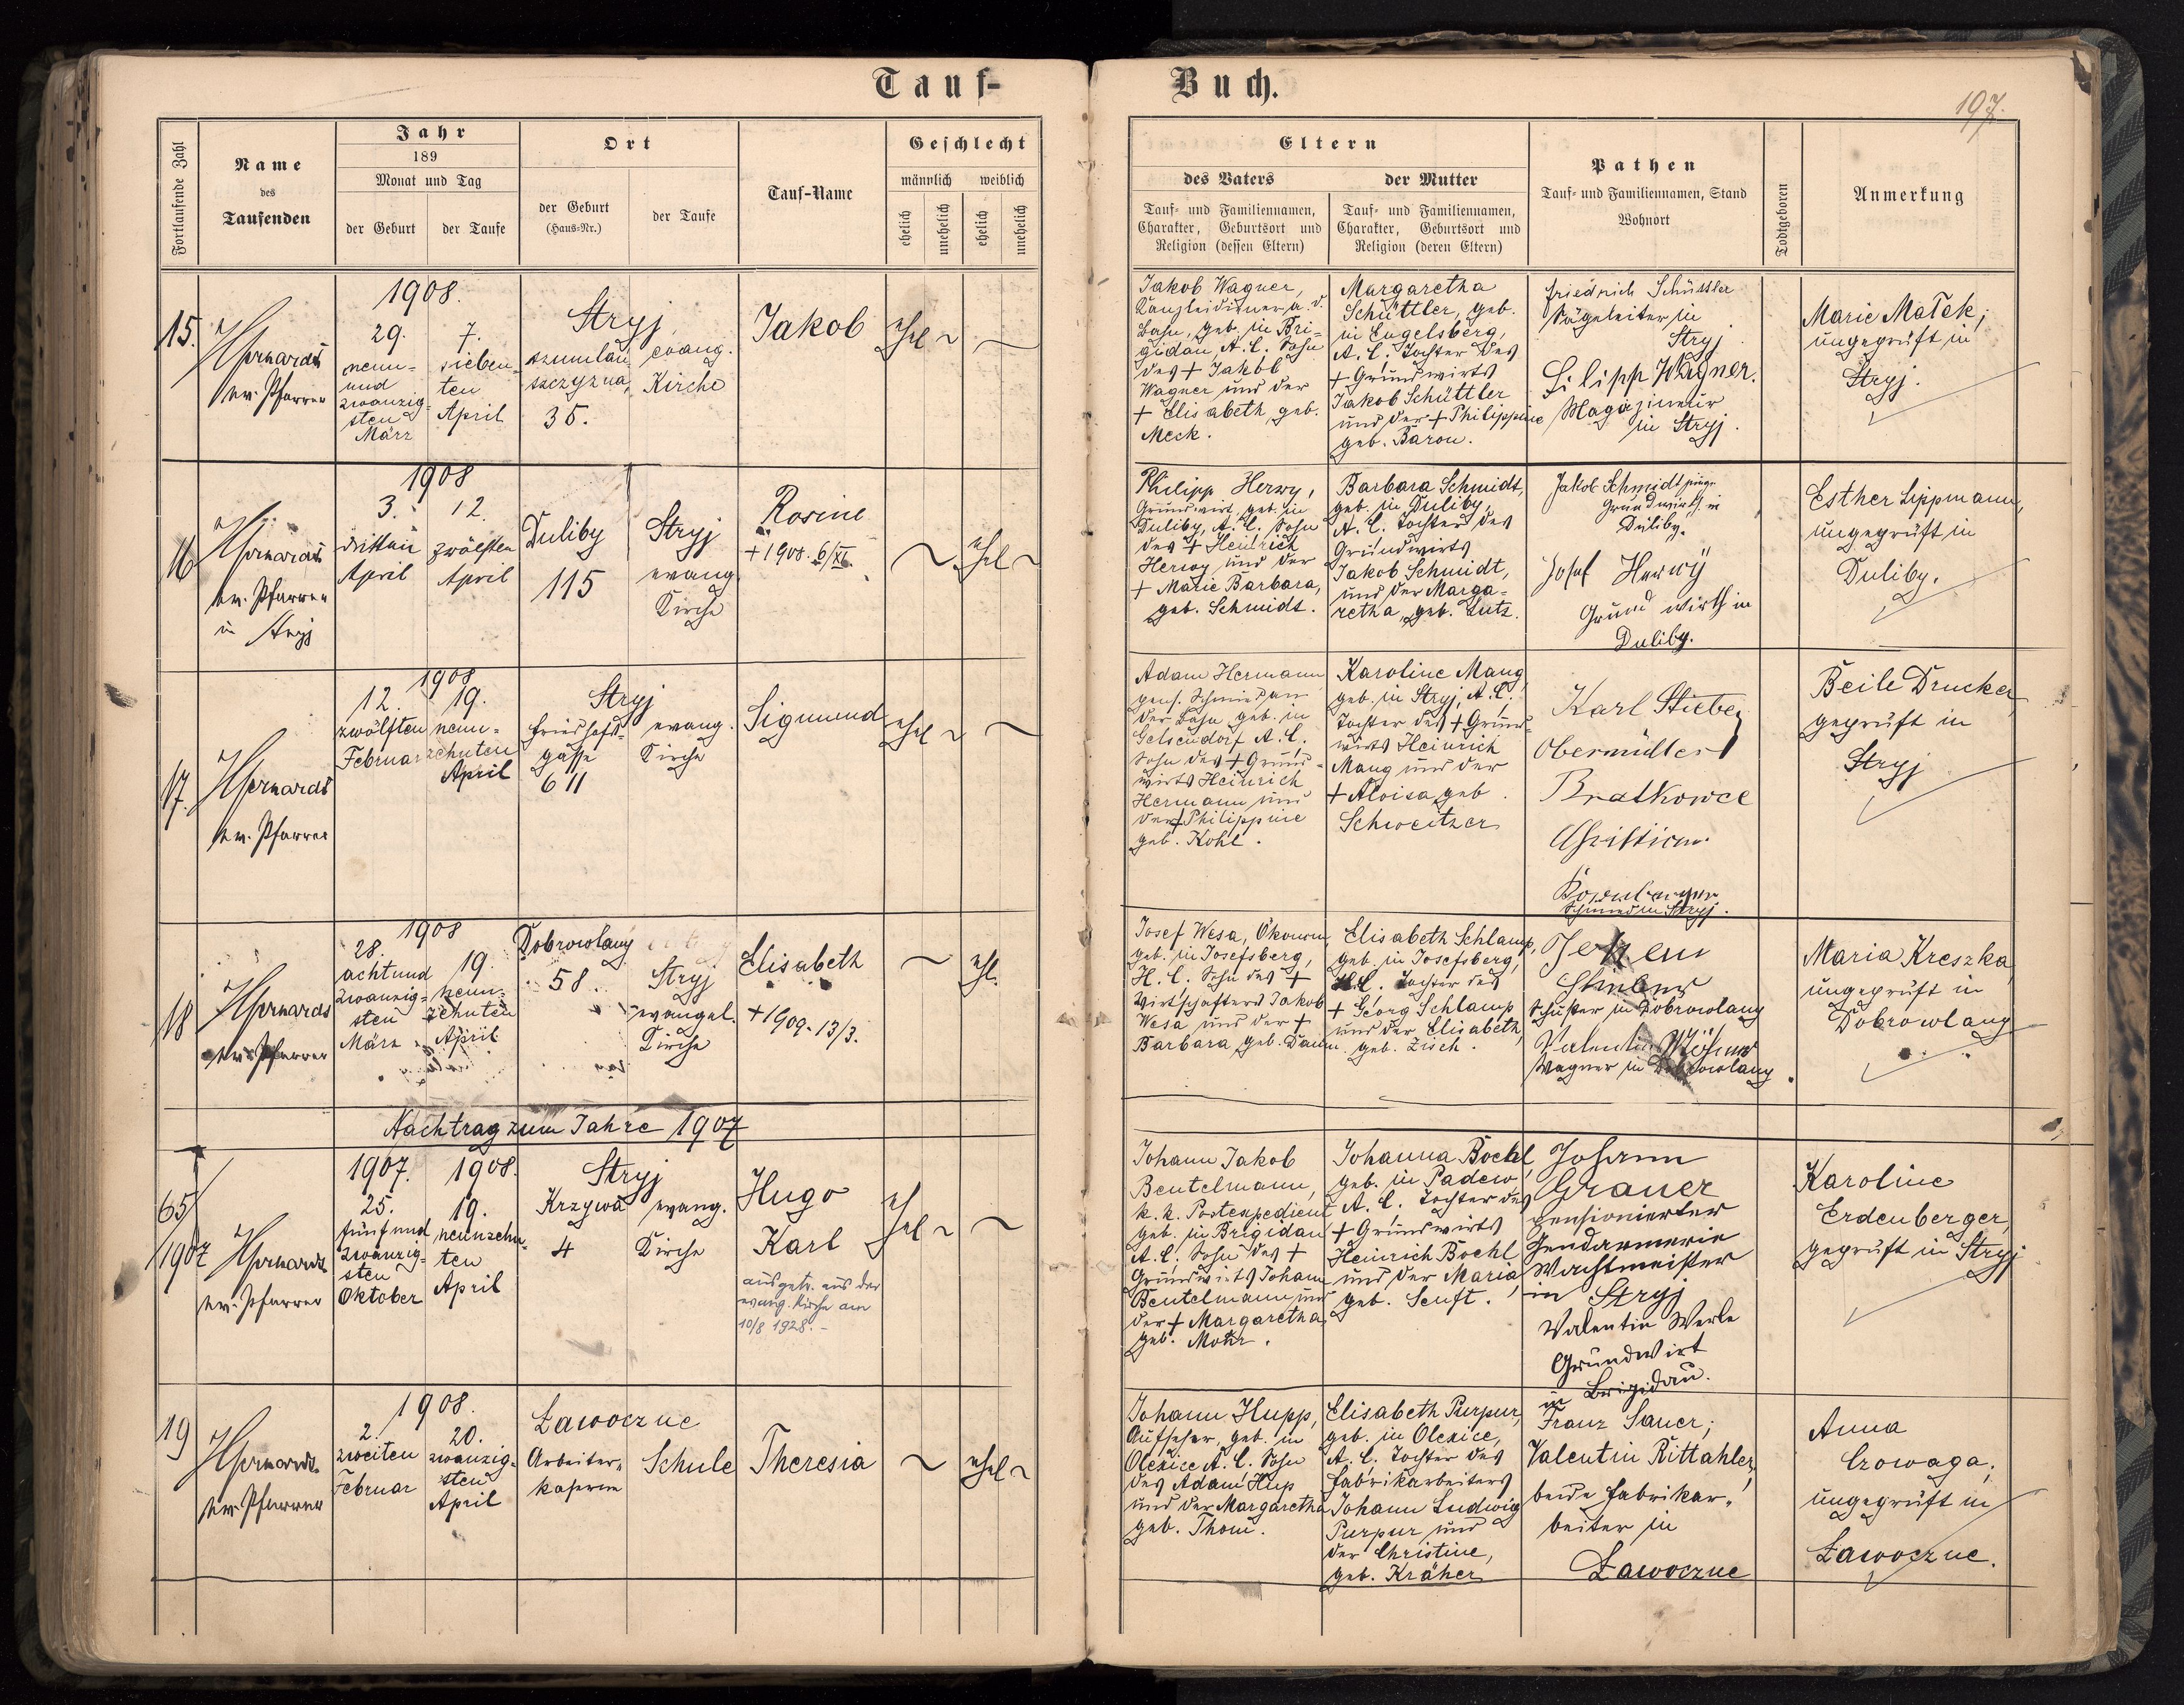 Tauf-
Buch.
197.
Fortlaufende Zahl
Name
des
Taufenden
Jahr
189
Monat und Tag
der Geburt
der Taufe
Ort
der Geburt
(Haus-Nr.)
der Taufe
Tauf-Name
Geschlecht
männlich
weiblich
ehelich
unehelich
ehelich
unehelich
Eltern
des Vaters
der Mutter
Tauf- und Familiennamen,
Charakter, Geburtsort und
Religion (dessen Eltern)
Tauf- und Familiennamen,
Charakter, Geburtsort und
Religion (deren Eltern)
Pathen
Tauf- und Familiennamen, Stand
Wohnort
Todtgeboren
Anmerkung
15.
ev. Pfarrer
1908.
29.
neun-
und
zwanzig-
sten
März
7.
sieben-
ten
April
Stryj
szumlań-
szczyzna,
35.
evang.
Kirche
Jakob
ehel ~
~
Jakob Wagner,
Kanzleidiener a. d.
Bahn, geb. in Bri-
gidau, A. C. Sohn
des + Jakob
Wagner und der
+ Elisabeth, geb.
Meck.
Margaretha
Schüttler, geb.
in Engelsberg,
A. C. Tochter des
+ Grundwirts
Jakob Schüttler
und der + Philippine
geb. Baron.
Friedrich Schüttler
Sägeleiter in
Stryj
Filipp Wagner.
Magazineur
in Stryj.
Marie Małek;
ungeprüft in
Stryj.
16
ev. Pfarrer
in Stryj
1908
3.
dritten
April
12.
zwölften
April
Duliby
115
Stryj
evang.
Kirche
Rosine
+ 1908. 6/XI.
~
ehel ~
Philipp Herwy,
Grundwirt, geb. in
Duliby, A. C. Sohn
des + Heinrich
Herwy und der
+ Marie Barbara,
geb. Schmidt.
Barbara Schmidt,
geb. in Duliby,
A. C. Tochter des
Grundwirts
Jakob Schmidt,
und der Marga-
retha, geb. Lutz.
Jakob Schmidt
Grundwirth in
Duliby.
Josef Herwÿ
Grund wirth in
Duliby.
Esther Lippmann,
ungeprüft in
Duliby.
17.
ev. Pfarrer
1908
12.
zwölften
Februar
19.
neun-
zehnten
April
Stryj
Friedhofs-
gasse
611
evang.
Kirche
Sigmund
ehel ~
~
Adam Hermann
Schmied an
der Bahn geb. in
Gelsendorf A. C.
Sohn des + Grund-
wirts Heinrich
Hermann und
der + Philippine
geb. Kohl.
Karoline Mang
geb. in Stryj, A. C.
Tochter des + Grund-
wirts Heinrich
Mang und der
+ Aloisa, geb.
Schweitzer
Karl Stieber
Obermüller
Bratkowce
Christian
Schmied in Stryj.
Beile Drucker
geprüft in
Stryj
18
ev. Pfarrer
1908
28.
achtund
zwanzig-
sten
März
19.
neun-
zehnten
April
Dobrowlany
58.
Stryj
evangel.
Kirche
Elisabeth
+ 1909. 13/3.
~
ehl.
Josef Wesa, Ökonom,
geb. in Josefsberg,
H. C. Sohn des +
Wirtschafters Jakob
Wesa und der +
Barbara, geb. Daum.
Elisabeth Schlamp,
geb. in Josefsberg,
H. C. Tochter des
+ Georg Schlamp
und der Elisabeth,
geb. Zisch.
Schuster in Dobrowlany
Valentin
Wagner in Dobrowlany
Maria Kreszka
ungeprüft in
Dobrowlany
Nachtrag zum Jahre 1907
65/
1907
ev. Pfarrer
1907.
25.
fünfund
zwanzig-
sten
Oktober
1908.
19.
neunzehn-
ten
April
Stryj
Krzywa
4
evang.
Kirche
Hugo
Karl
ausgetr. aus der
evang. Kirche am
10/8 1928. -
ehel ~
~
Johann Jakob
Beutelmann,
k. k. Postexpedient
geb. in Brigidau
A. C. Sohn des +
Grundwirts Johann
Beutelmann und
der + Margaretha,
geb. Mohr.
Johanna Bochl,
geb. in Padew
A. C. Tochter des
+ Grundwirts
Heinrich Bochl
und der Maria,
geb. Senft.
Johann
Grauer
pensionierter
Gendarmerie
Wachtmeister
in Stryj
Valentin Werle
Grundwirt
in Brigidau.
Karoline
Erdenberger,
geprüft in Stryj
19
ev. Pfarrer
1908.
2.
zweiten
Februar
20.
zwanzig-
sten
April
Ławoczne
Arbeiter-
kaserne
Schule
Theresia
~
ehel ~
Johann Hupp,
Aufseher, geb. in
Olexice A. C. Sohn
des Adam Hup
und der Margaretha
geb. Thom.
Elisabeth Purpur,
geb. in Olexice,
A. C. Tochter des
Fabrikarbeiters
Johann Ludwig
Purpur und
der Christine,
geb. Kräher
Franz Sauer;
Valentin Rittahler,
beide Fabrikar-
beiter in
Ławoczne
Anna
Czowaga,
ungeprüft in
Ławoczne.